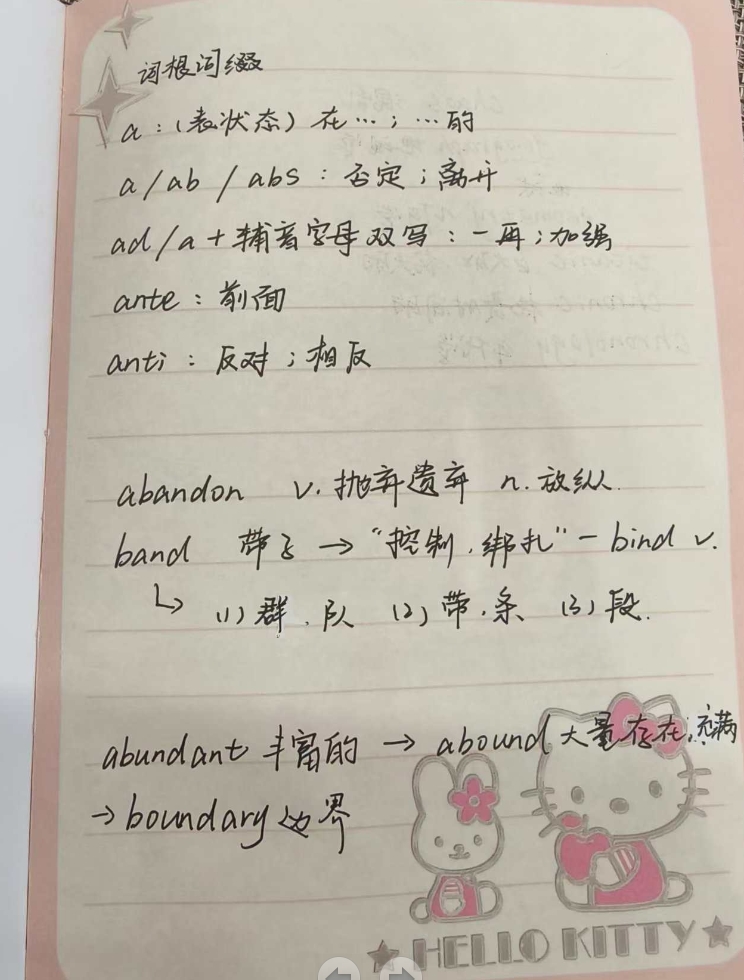 词根词缀
a：（表状态）在…；…的
a/ab/abs：否定；离开
ad/a+辅音字母双写：一再；加强
ante：前面
anti：反对；相反
abandon v. 抛弃遗弃 n. 放纵.
band 带子 → “控制.绑扎” - bind v.
↳ (1) 群.队 (2) 带.条 (3) 段.
abundant 丰富的 → abound 大量存在;充满
→ boundary 边界
HELLO KITTY